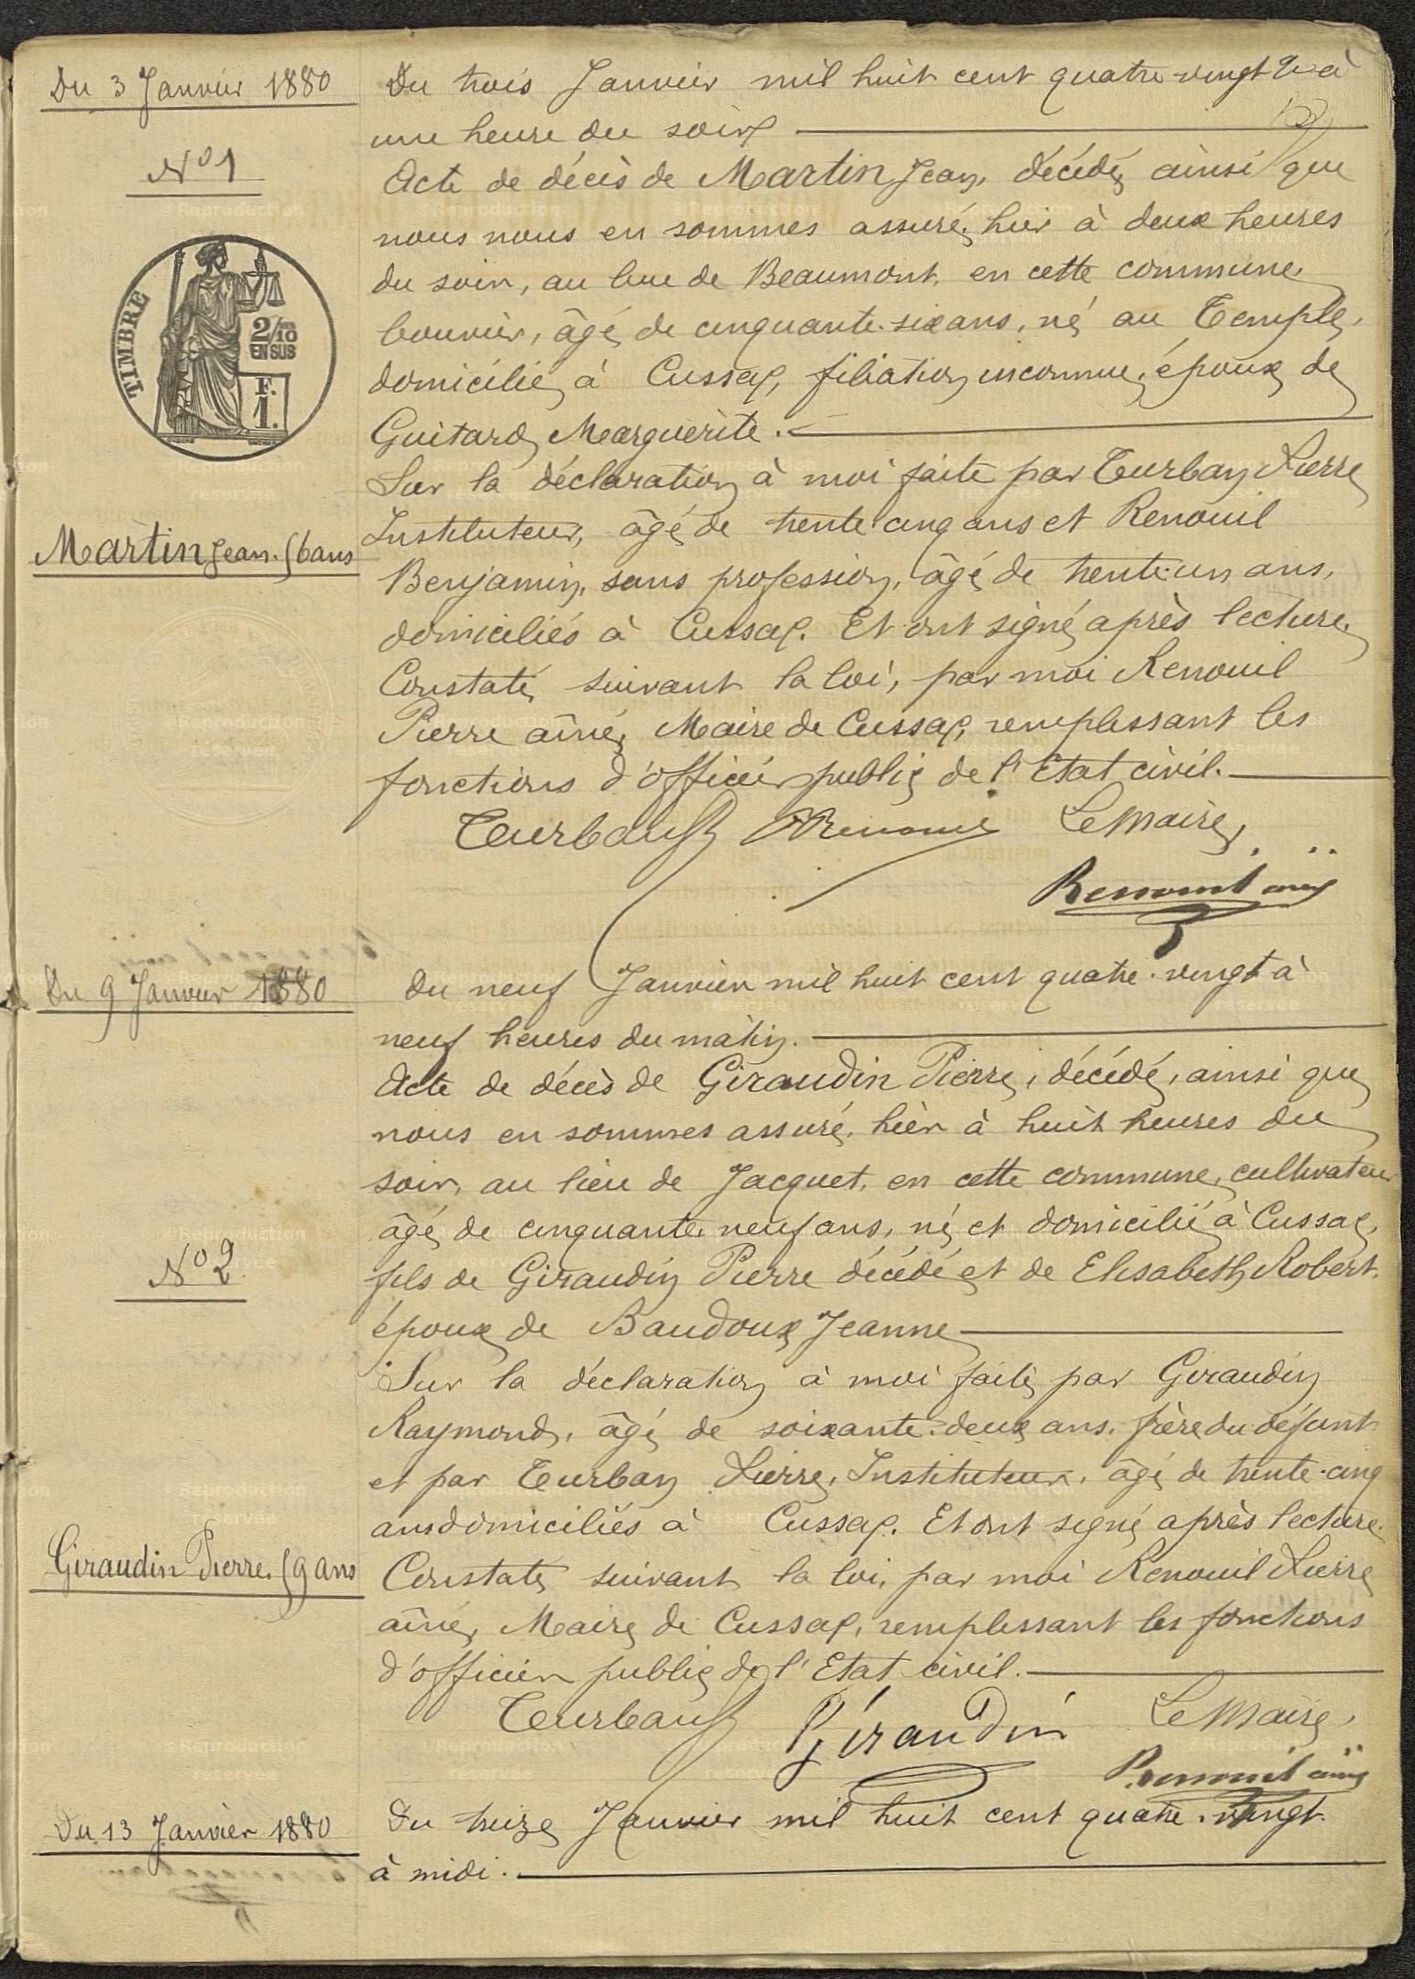 Du 3 Janvier 1880
Du trois Janvier mil huit cent quatre-vingt à
une heure du soir
N° 1
Acte de décès de Martin Jean, décédé, ainsi que
nous nous en sommes assuré, hier à deux heures
du soir, au lieu de Beaumont, en cette commune,
TIMBRE
2/10
EN SUS
F.
1.
bouvier, âgé de cinquante-six ans, né au Temple,
domicilié à Cussac, filiation inconnue, époux de
Guitard Marguerite.
Sur la déclaration à moi faite par Turban Pierre
Instituteur, âgé de trente-cinq ans et Renouil
Martin Jean. 56 ans
Benjamin, sans profession, âgé de trente-un ans,
domiciliés à Cussac. Et ont signé après lecture.
Constaté, suivant la loi, par moi Renouil
Pierre aîné, Maire de Cussac, remplissant les
fonctions d'officier public de l'Etat civil.
Turban Renouil Le Maire,
Renouil ainé
Du 9 Janvier 1880
Du neuf Janvier mil huit cent quatre-vingt à
neuf heures du matin.
Acte de décès de Giraudin Pierre, décédé, ainsi que
nous en sommes assuré, hier à huit heures du
soir, au lieu de Jacquet, en cette commune, cultivateur
âgé de cinquante-neuf ans, né et domicilié à Cussac,
N° 2
fils de Giraudin Pierre décédé et de Elisabeth Robert.
époux de Baudoux Jeanne
Sur la déclaration à moi faite par Giraudin
Raymond, âgé de soixante-deux ans, frère du défunt
et par Turban Pierre, Instituteur, âgé de trente-cinq
ans domiciliés à Cussac. Et ont signé après lecture.
Giraudin Pierre. 59 ans
Constaté suivant la loi, par moi Renouil Pierre
aîné, Maire de Cussac, remplissant les fonctions
d'officier public de l'Etat civil.
Turban Giraudin Le Maire,
Renouil ainé
Du 13 Janvier 1880
Du treize Janvier mil huit cent quatre-vingt
à midi.